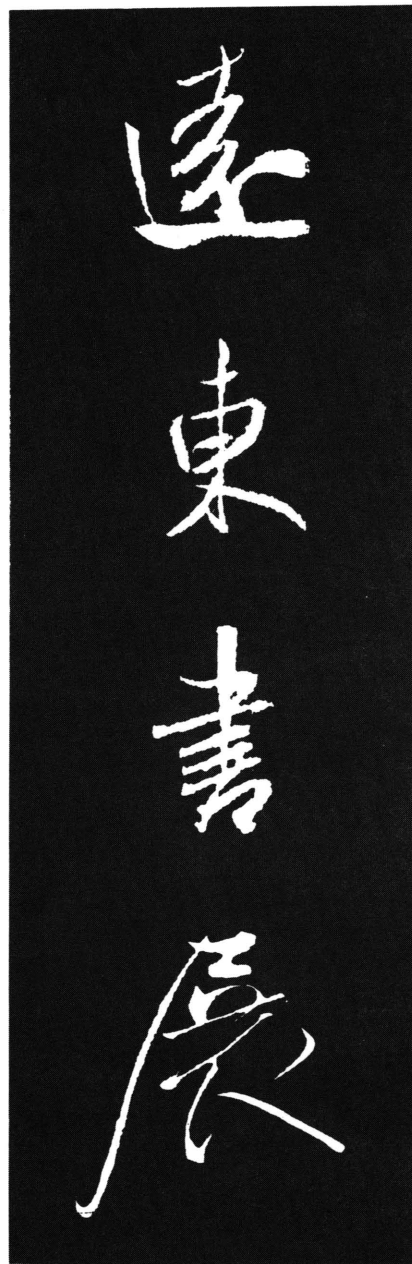 遠東書展